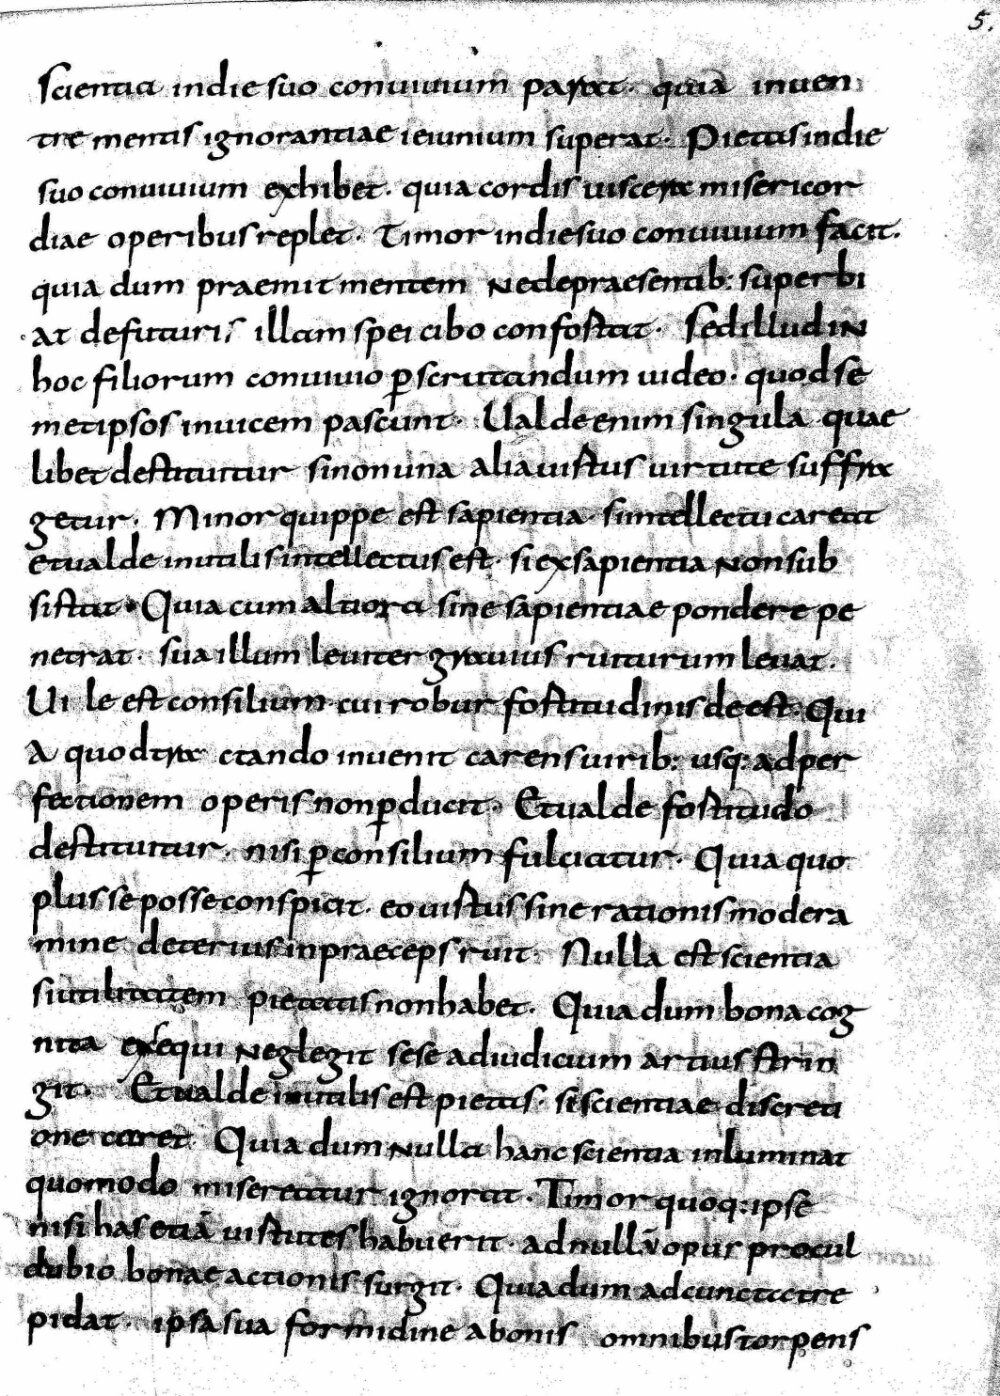 5.
scientia in die suo conuiuium parat. quia in uen
tre mentis ignorantiae ieiunium superat. Pietas in die
suo conuiuium exhibet. quia cordis uiscera misericor
diae operibus replet. Timor in die suo conuiuium facit.
quia dum praemit mentem ne de praesentib: superbi
at de futuris illam spei cibo confortat. Sed illud in
hoc filiorum conuiuio pscrutandum uideo. quod se
metipsos inuicem pascunt. Ualde enim singula quae
libet destituitur si non una alia uirtus uirtute suffra
getur. Minor quippe est sapientia. si intellectu careat
et ualde inutilis intellectus est. si ex sapientia non sub
sistat. Quia cum altiora sine sapientiae pondere pe
netrat. sua illum leuiter grauius ruiturum leuat.
Uile est consilium. cui robur fortitudinis deest. Qui
a quod tractando inuenit carens uirib: usq: ad per
fectionem operis non pducit. Et ualde fortitudo
destituitur. nisi p consilium fulciatur. Quia quo
plus se posse conspicit. eo uirtus sine rationis modera
mine deterius in praeceps ruit. Nulla est scientia
si utilitatem pietatis non habet. Quia dum bona cog
nita exequi neglegit sese ad iudicium artius strin
git. Et ualde inutilis est pietas. si scientiae discreti
one caret. Quia dum nulla hanc scientia inluminat
quomodo misereatur ignorat. Timor quoq: ipse
nisi has etiā uirtutes habuerit. ad nullū opus procul
dubio bonae actionis surgit. Quia dum ad cuncta tre
pidat. ipsa sua formidine a bonis omnibus torpens